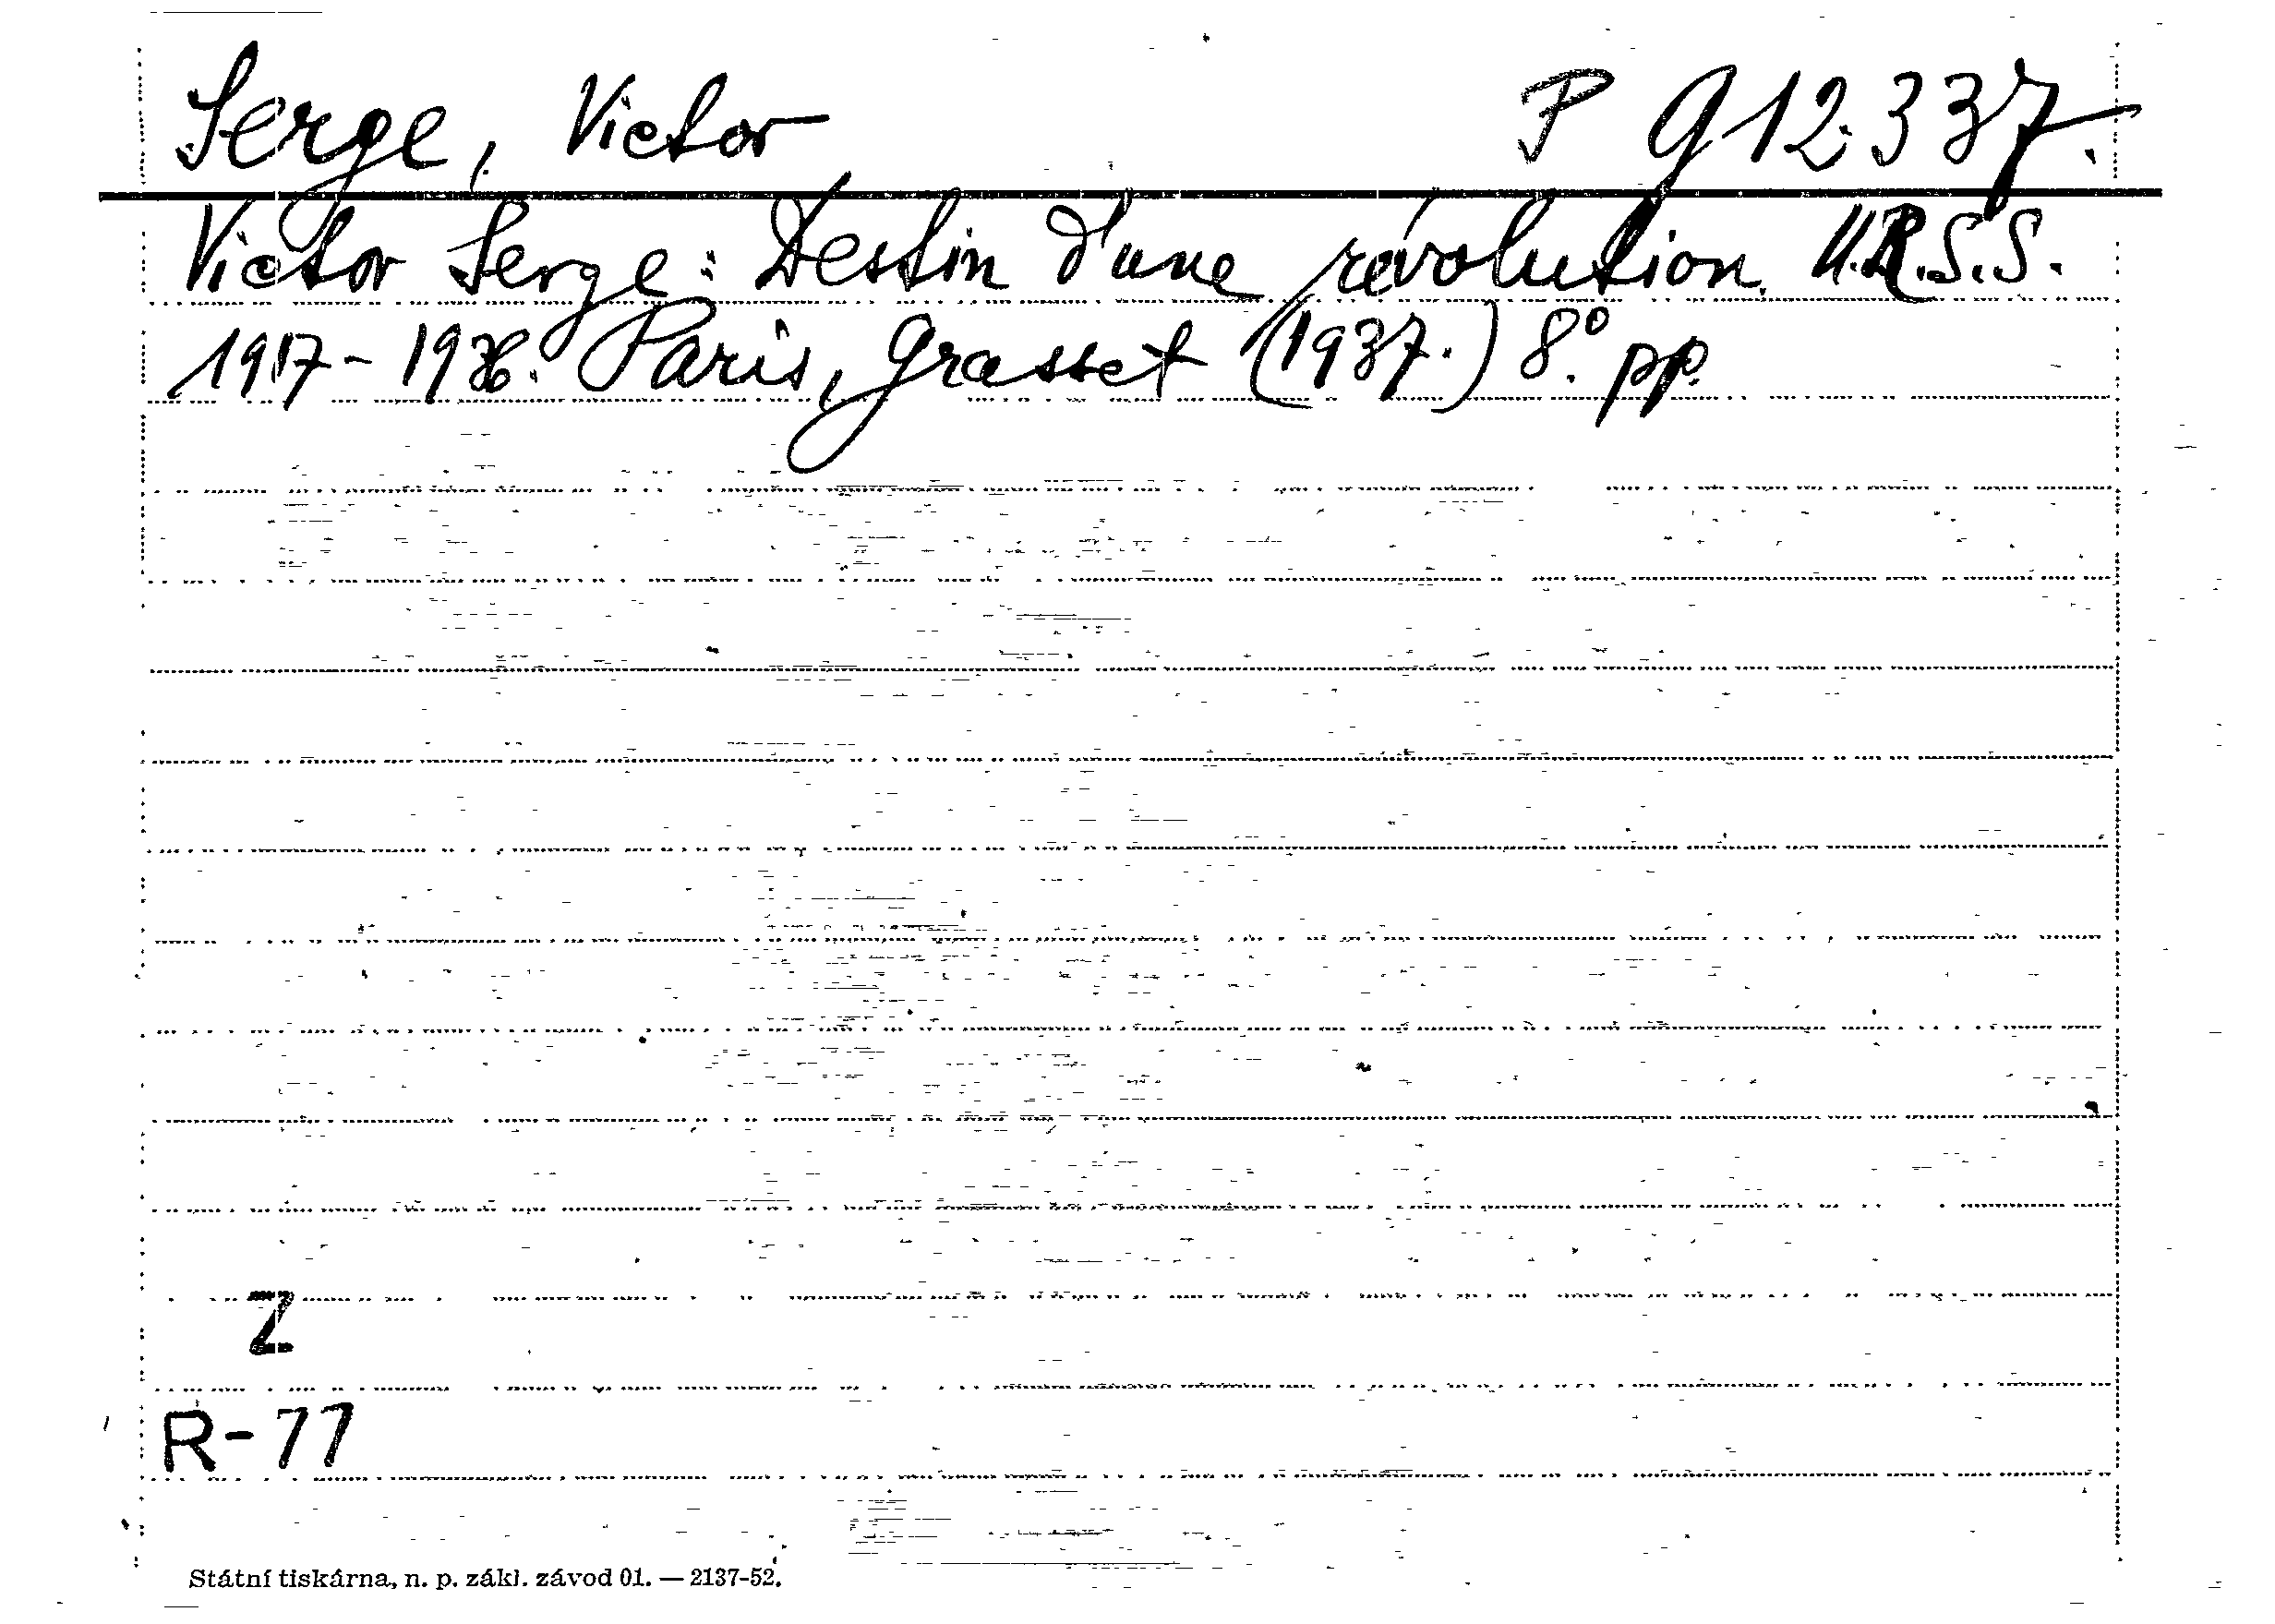 Serge, Victor P 912.337.
Victor Serge: Destin d'une révolution. U.R.S.S.
1917-1936. Paris, Grasset (1937.) 8°. pp.
Z
R-77
Státní tiskárna, n. p. zákl. závod 01. — 2137-52.